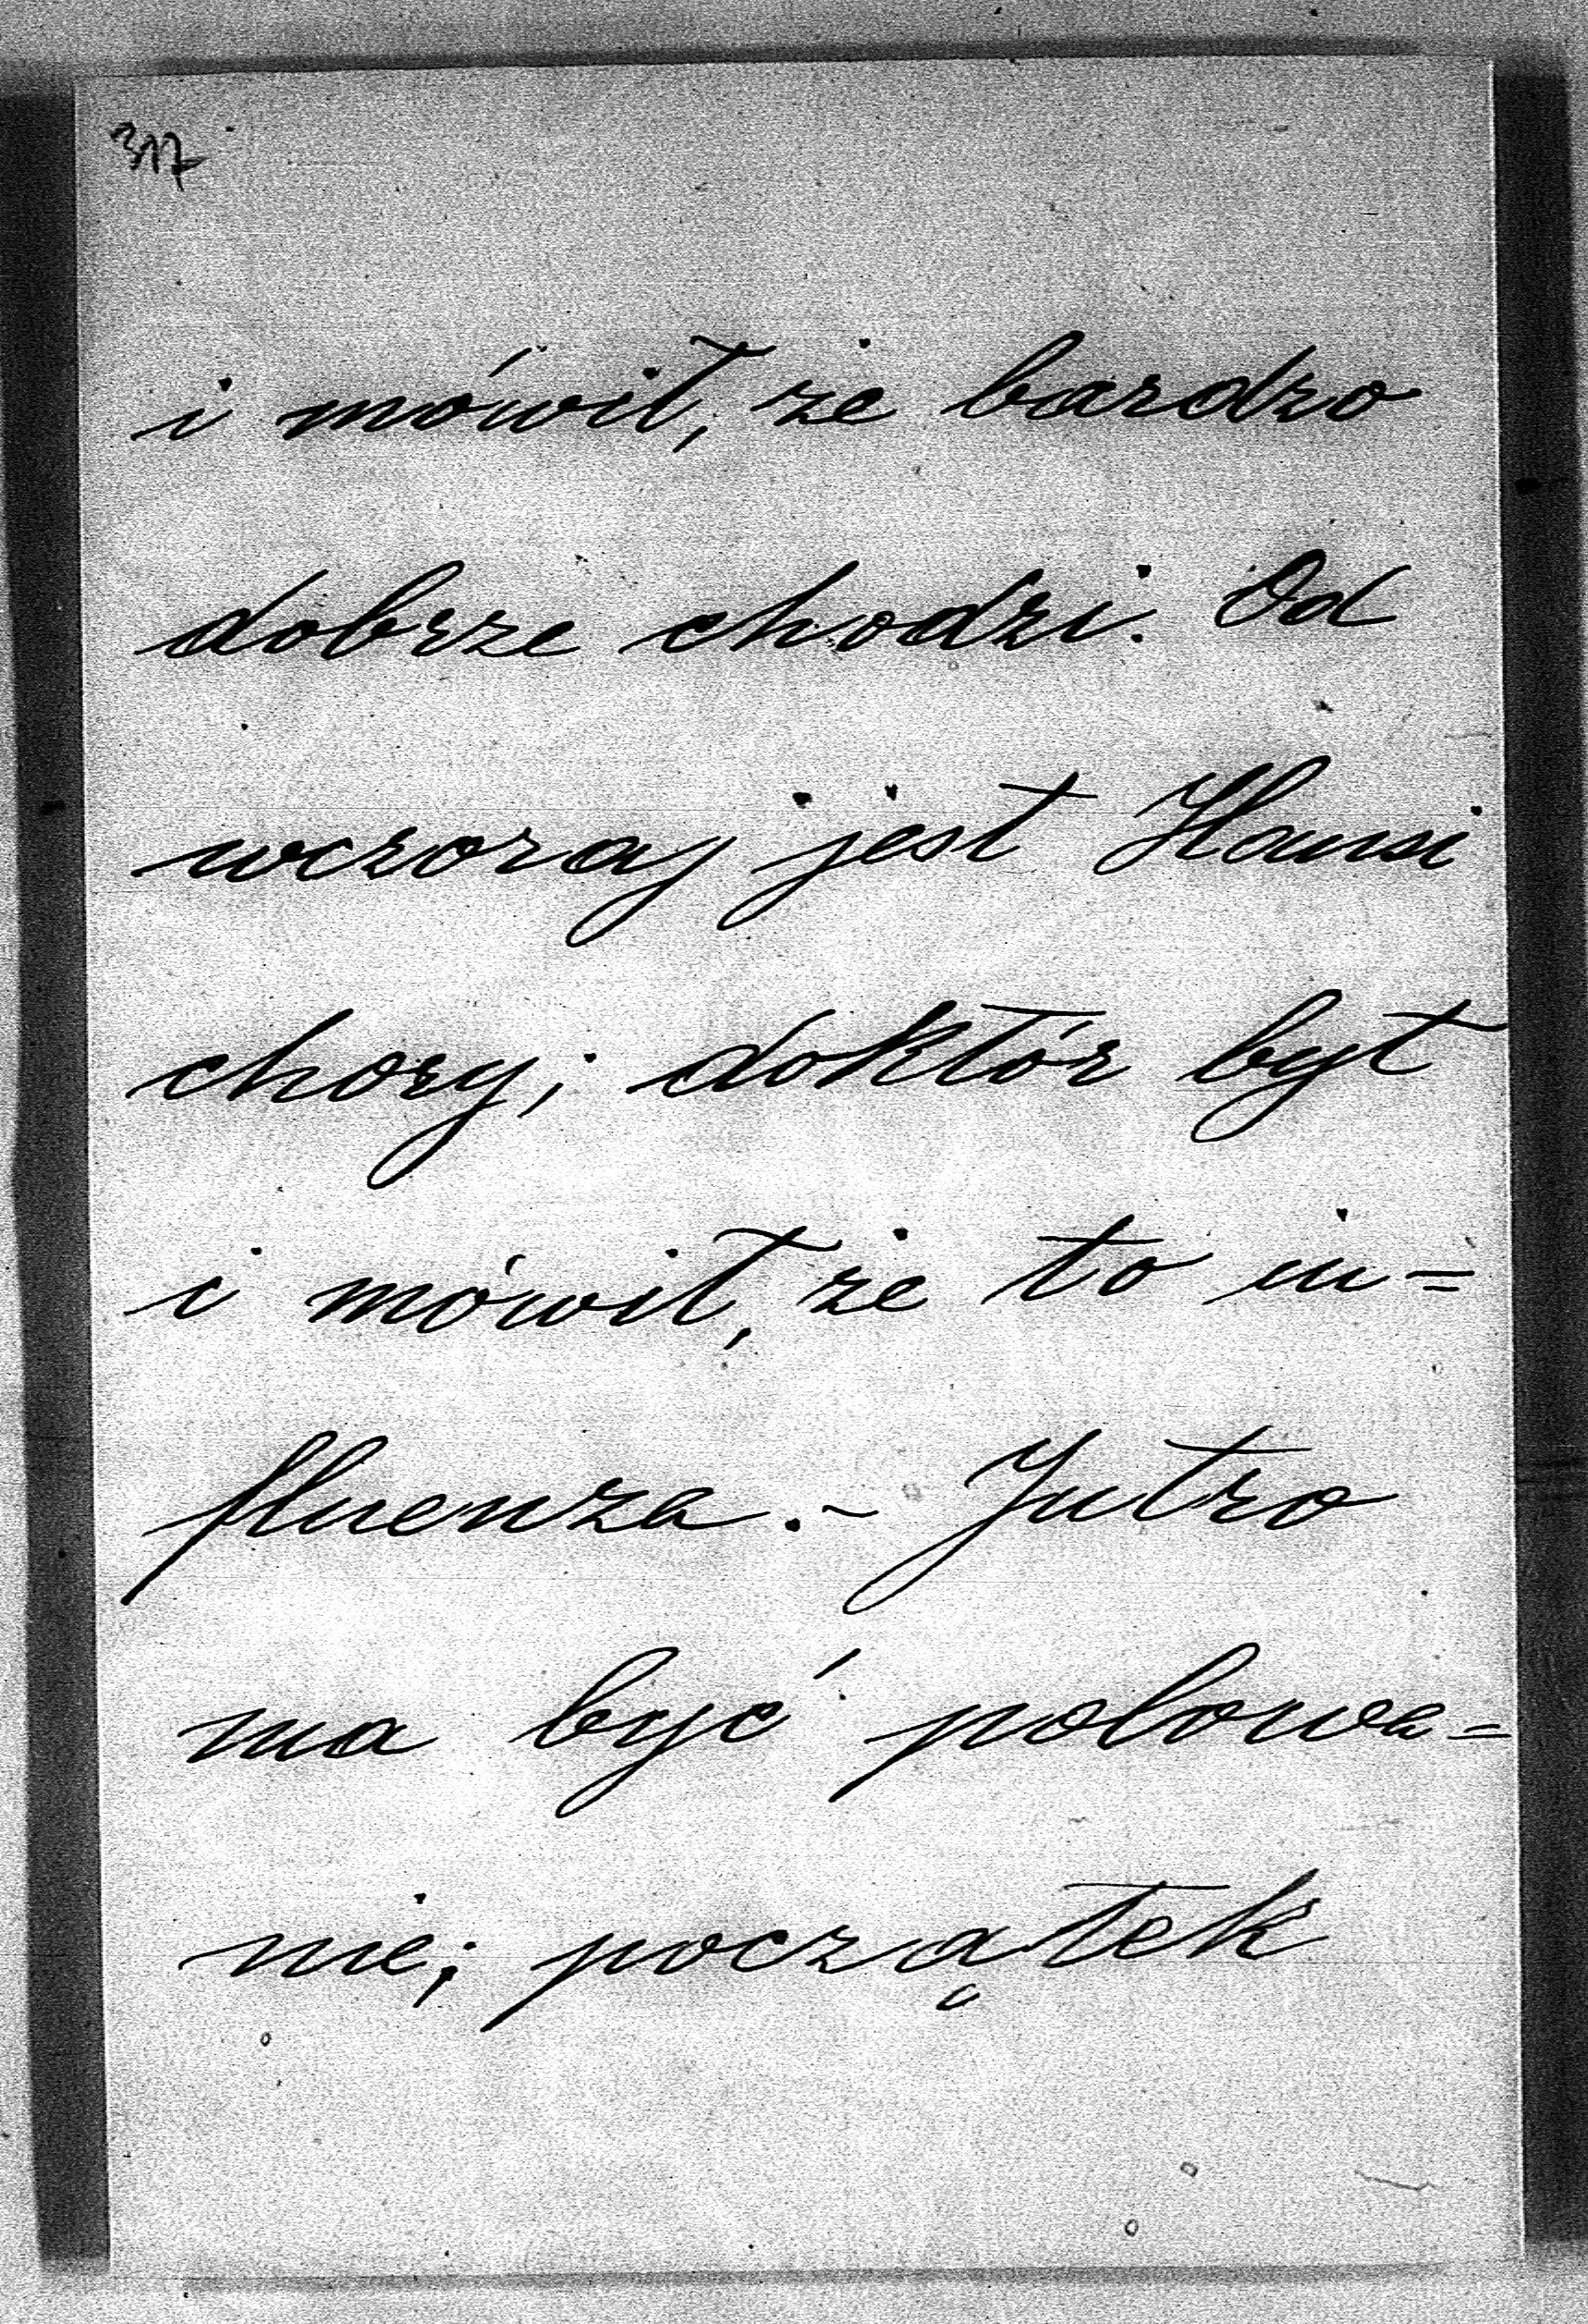 317
i mówił, że bardzo
dobrze chodzi. Od
wczoraj jest Hansi
chory; doktór był
i mówił, że to in=
fluenza.- Jutro
ma być polowa=
nie; początek